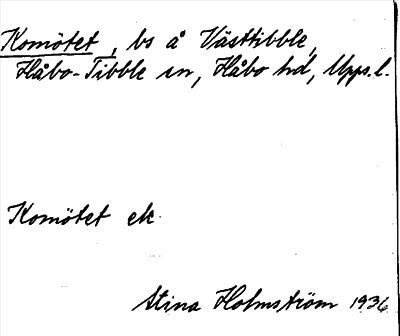 Komötet, bs å Västtibble,
Håbo-Tibble sn, Håbo hd, Upps.l.
Komötet ek
Stina Holmström 1936